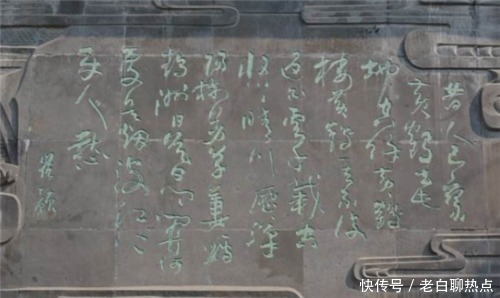 昔人已乘
黃鶴去此
地空餘黃鶴
樓黃鶴一去不復
返白雲千載空
悠悠晴川歷歷漢
陽樹芳草萋萋鸚
鵡洲日暮鄉關何
處是煙波江上
使人愁
崔顥
快传号/老白聊热点